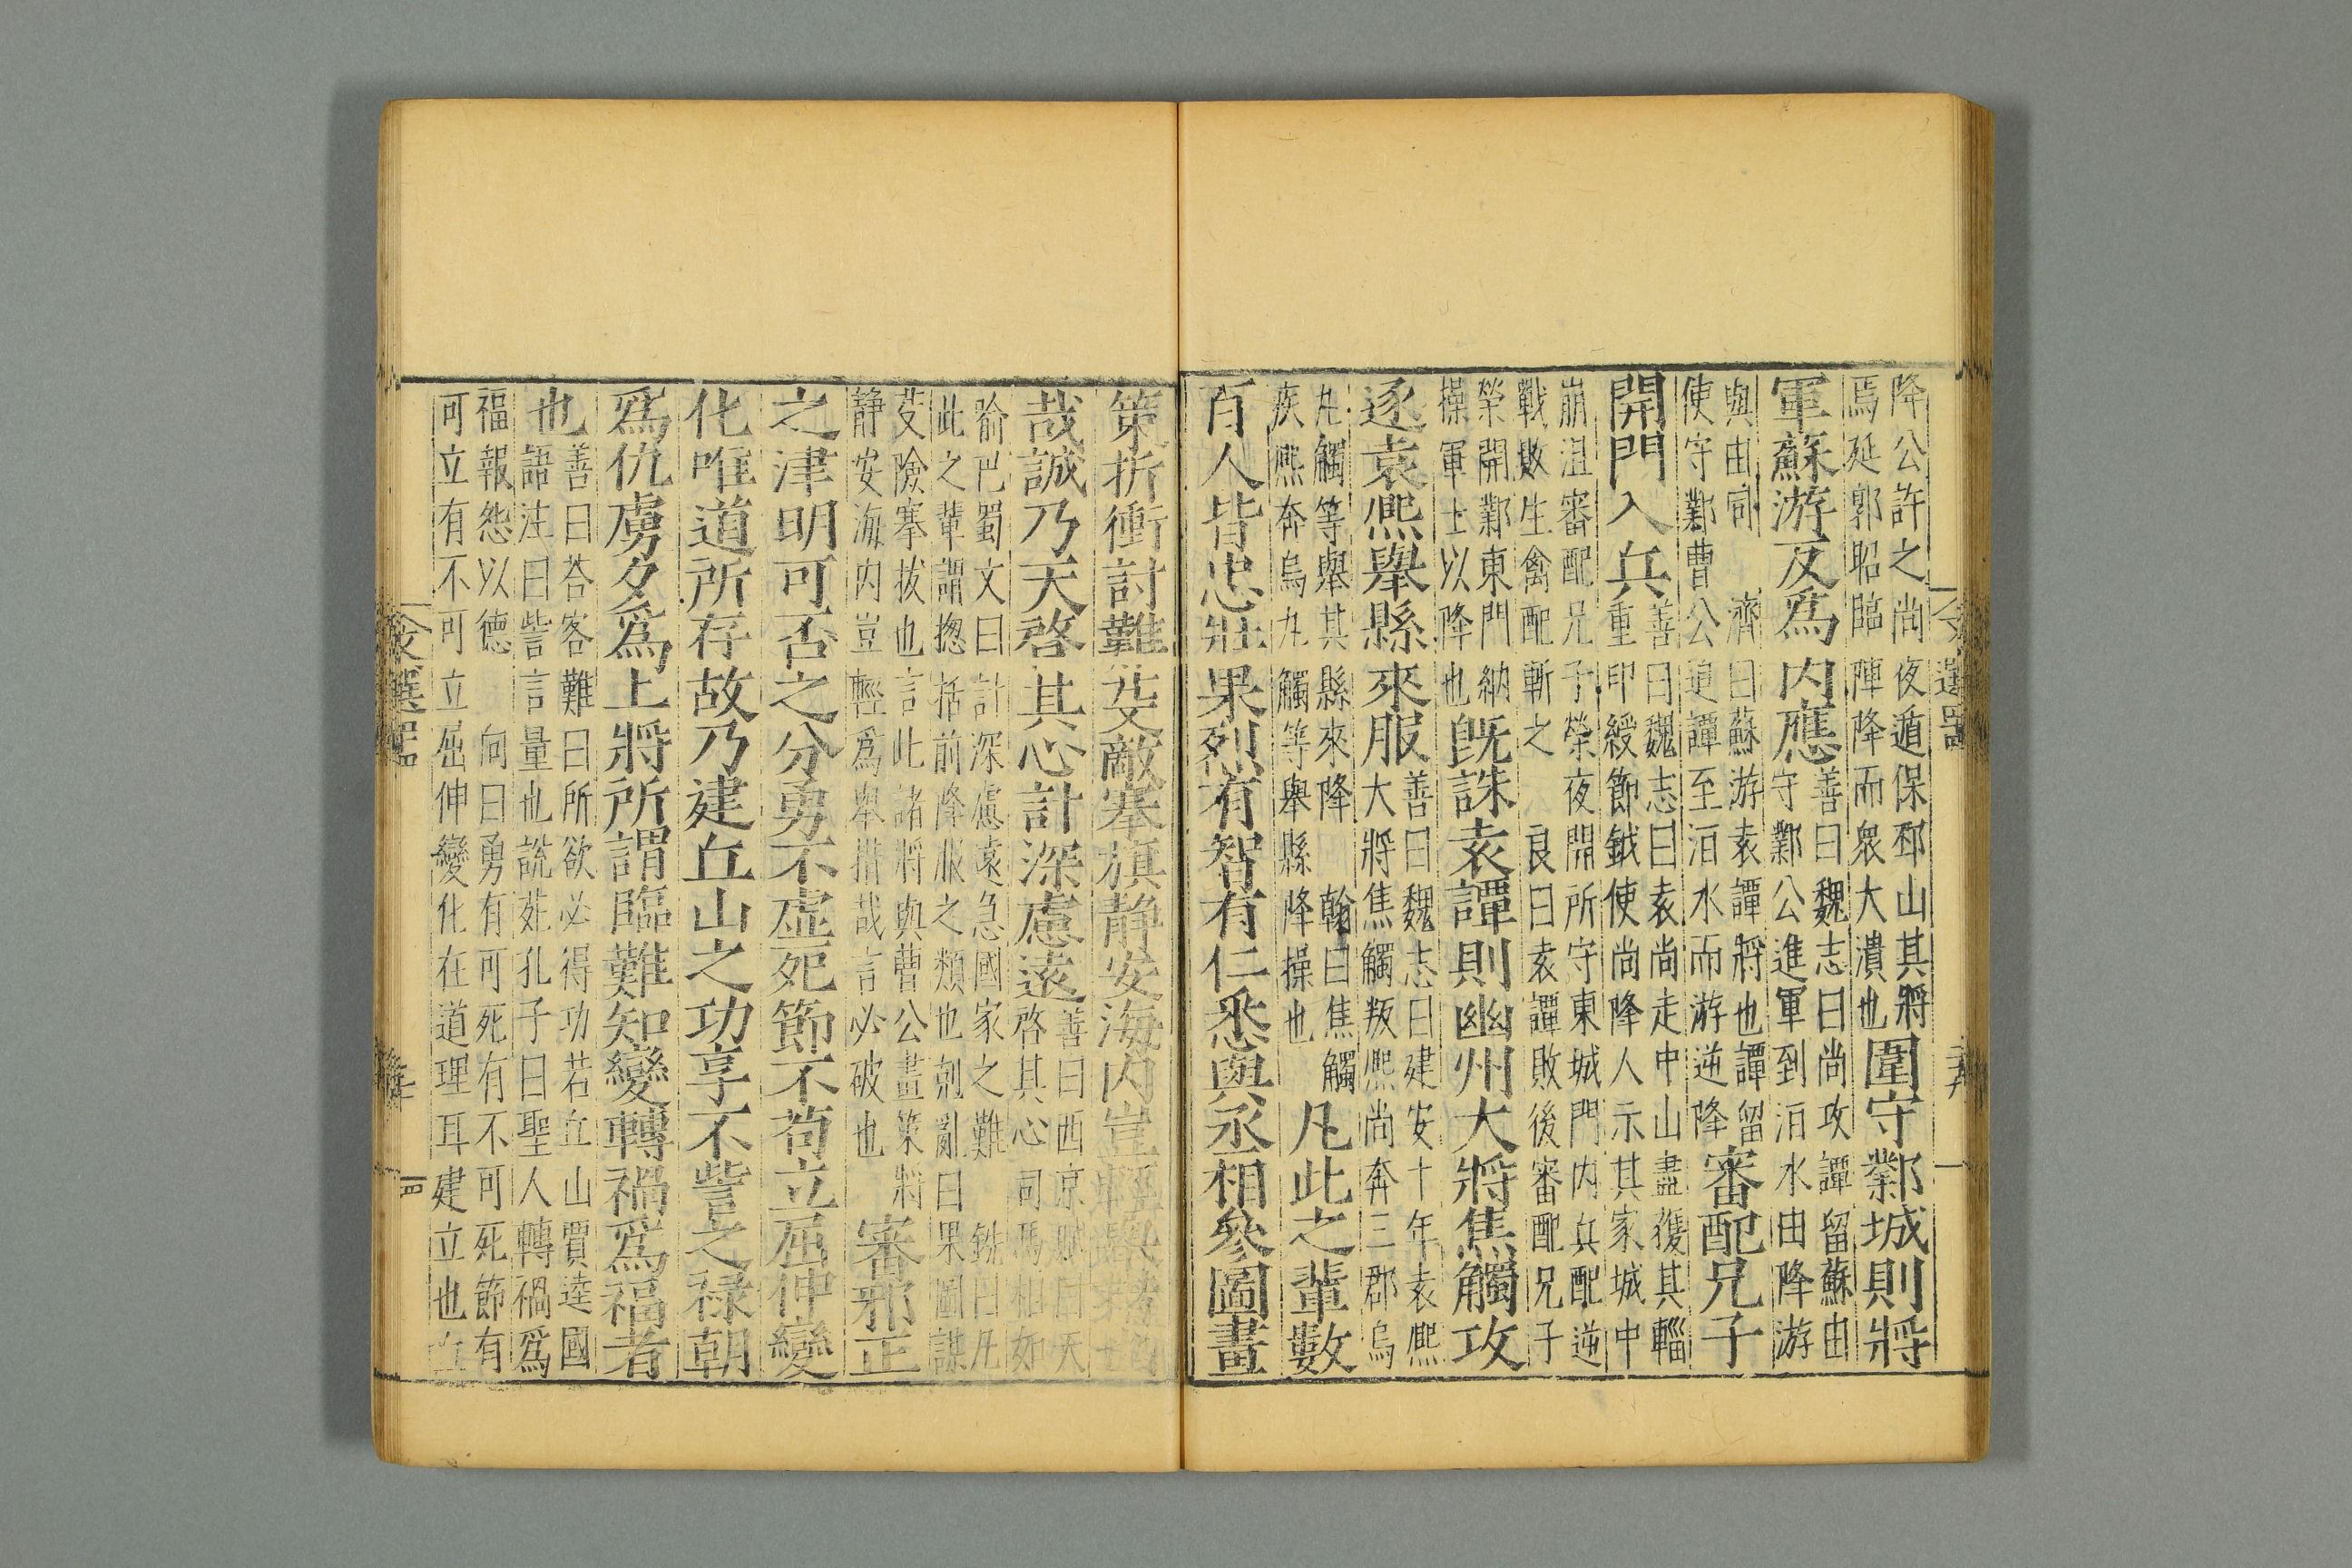 降公許之尚夜遁保邳山其將
焉延郭昭臨陣降而衆大潰也
圍守鄴城則將
軍蘇游反爲内應
善曰魏志曰尚攻譚留蘇由
守鄴公進軍到洹水由降游
與由同　濟曰蘇游袁譚將也譚留
使守鄴曹公追譚至洹水而游逆降
審配兄子
開門入兵
善曰魏志曰袁尚走中山盡獲其輜
重印綬節鉞使尚降人示其家城中
崩沮審配兄子榮夜開所守東城門内兵配逆
戰敗生禽配斬之　良曰袁譚敗後審配兄子
榮開鄴東門納
操軍士以降也
旣誅袁譚則幽州大將焦觸攻
逐袁熈舉縣來服
善曰魏志曰建安十年袁熈
大將焦觸叛熈尚奔三郡烏
丸觸等舉其縣來降　翰曰焦觸
疾熈奔烏丸觸等舉縣降操也
凡此之輩數
百人皆忠壯果烈有智有仁悉與丞相參圖畫
策折衝討難芟敵搴旗静安海内豈輕舉措
哉誠乃天啓其心計深慮遠
善曰西京賦曰天
啓其心司馬相如
喻巴蜀文曰計深慮遠急國家之難　銑曰凡
此之輩謂揔括前降服之類也剋亂曰果圖謀
芟險搴拔也言此諸將與曹公畫策將
静安海内豈輕爲舉措哉言必破也
審邪正
之津明可否之分勇不虛死節不苟立屈伸變
化唯道所存故乃建丘山之功享不訾之禄朝
爲仇虜夕爲上將所謂臨難知變轉禍爲福者
也
善曰荅客難曰所欲必得功若丘山賈逵國
語注曰訾言量也說苑孔子曰聖人轉禍爲
福報怨以德　向曰勇有可死有不可死節有
可立有不可立屈伸變化在道理耳建立也